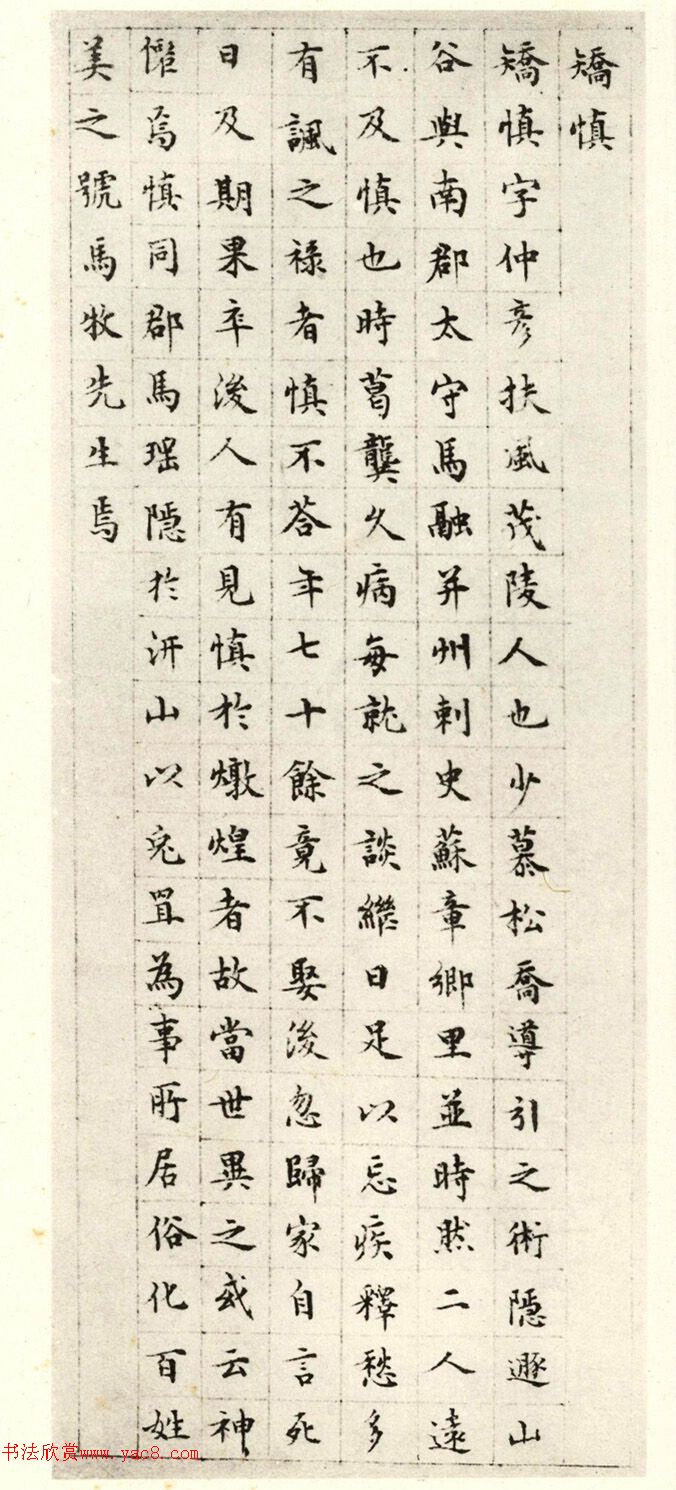 矯慎
矯慎字仲彥扶風茂陵人也少慕松喬導引之術隱遯山
谷與南郡太守馬融并州刺史蘇章鄉里並時然二人遠
不及慎也時葛龔久病每就之談繼日足以忘疾釋愁多
有諷之祿者慎不荅年七十餘竟不娶後忽歸家自言死
日及期果卒後人有見慎於燉煌者故當世異之或云神
僊焉慎同郡馬瑶隱於汧山以兔罝為事所居俗化百姓
美之號馬牧先生焉
书法欣赏www.yac8.com